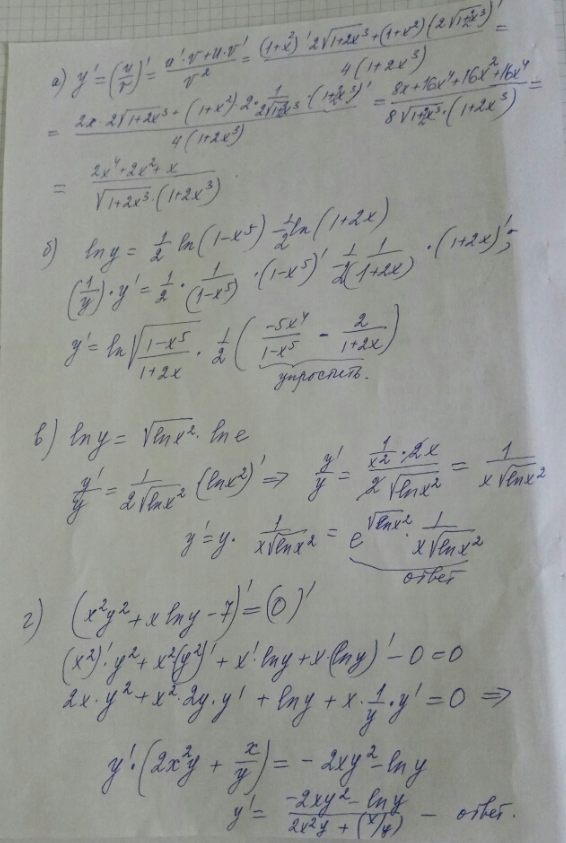 а) y' = (u/v)' = (u'·v+u·v')/v² = ((1+x²)' 2√(1+2x³) + (1+x²)(2√(1+2x³))')/(4(1+2x³)) =
= (2x·2√(1+2x³) + (1+x²)·2·1/(2√(1+2x³))·(1+2x³)')/(4(1+2x³)) = (8x+16x⁴+16x²+16x⁴)/(8√(1+2x³)·(1+2x³)) =
= (2x⁴+2x²+x)/(√(1+2x³)·(1+2x³)).
б) ln y = 1/2 ln(1-x⁵) - 1/2 ln(1+2x)
(1/y)·y' = 1/2 · 1/(1-x⁵) · (1-x⁵)' - 1/2 (1/(1+2x)) · (1+2x)';
y' = ln√((1-x⁵)/(1+2x)) · 1/2 (-5x⁴/(1-x⁵) - 2/(1+2x))
упростить.
в) ln y = √(ln x²) · ln e
y'/y = 1/(2√(ln x²)) (ln x²)' ⇒ y'/y = (1/x² · 2x)/(2√(ln x²)) = 1/(x√(ln x²))
y' = y · 1/(x√(ln x²)) = e^√(ln x²) · 1/(x√(ln x²))
ответ
г) (x²y² + x ln y - 7)' = (0)'
(x²)'·y² + x²(y²)' + x'·ln y + x·(ln y)' - 0 = 0
2x·y² + x²·2y·y' + ln y + x·1/y·y' = 0 ⇒
y'·(2x²y + x/y) = -2xy² - ln y
y' = (-2xy² - ln y)/(2x²y + (x/y)) - ответ.